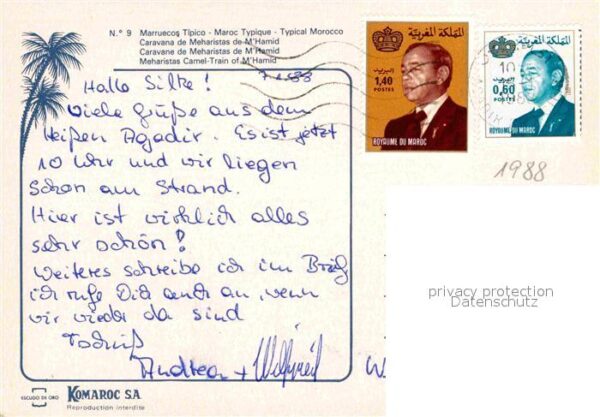 N.° 9 Marruecos Típico - Maroc Typique - Typical Morocco
Caravana de Meharistas de M'Hamid
Caravane de Meharistas de M'Hamid
Meharistas Camel-Train of M'Hamid
Hallo Silke!
Viele Grüße aus dem
heißen Agadir. Es ist jetzt
10 Uhr und wir liegen
schon am Strand.
Hier ist wirklich alles
sehr schön!
Weiteres schreibe ich im Brief,
ich rufe Dich auch an, wenn
wir wieder da sind
Tschüß
Andrea + Wilfried
المملكة المغربية
البريد
1,40
POSTES
ROYAUME DU MAROC
المملكة المغربية
البريد
0,60
POSTES
ROYAUME DU MAROC
1988
privacy protection
Datenschutz
ESCUDO DE ORO
KOMAROC S.A.
Reproduction interdite